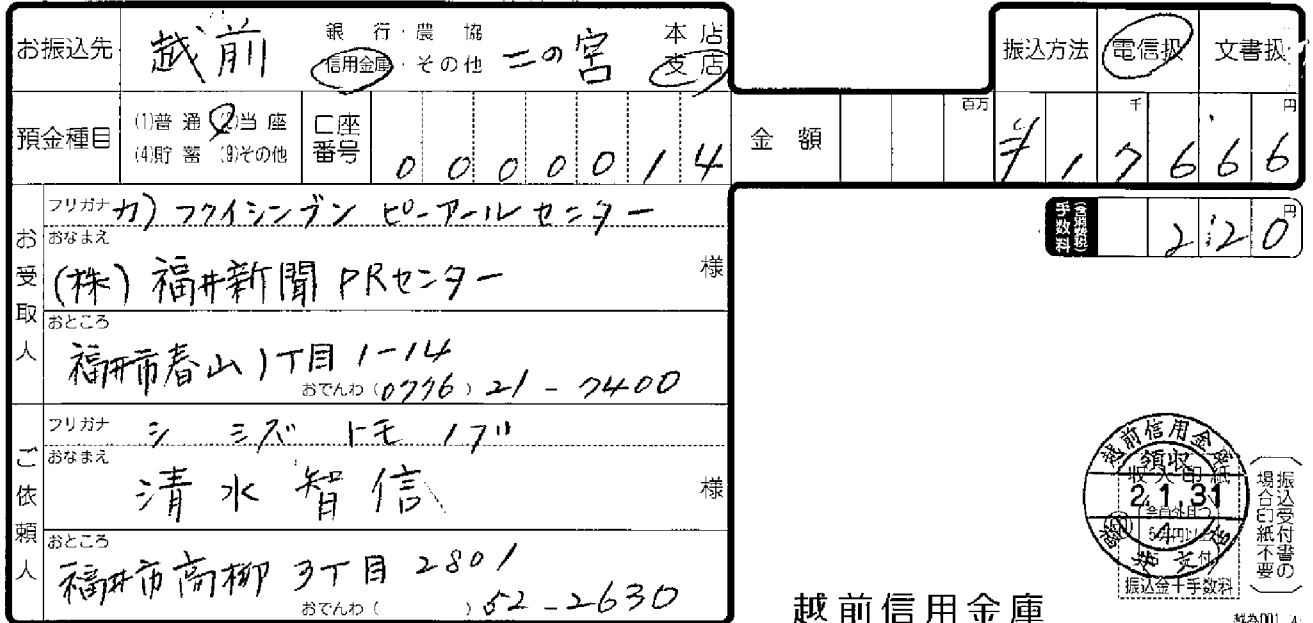 お振込先 越前 銀行・農協 信用金庫・その他 二の宮 本店 支店 振込方法 電信扱 文書扱
預金種目 (1)普通 (2)当座 (4)貯蓄 (9)その他 口座番号 0000014 金額 百万 千 円 ¥17666
お受取人
フリガナ カ)フクイシンブン ピーアールセンター
手数料 220円
おなまえ (株)福井新聞PRセンター 様
おところ 福井市春山1丁目1-14
おでんわ(0776)21-7400
ご依頼人
フリガナ シミズ トモノブ
おなまえ 清水智信 様
おところ 福井市高柳3丁目2801
おでんわ( )52-2630
越前信用金庫
領収
収入印紙
2.1.31
4
支店
振込金+手数料
振込受付書の場合印紙不要
越前信用金庫